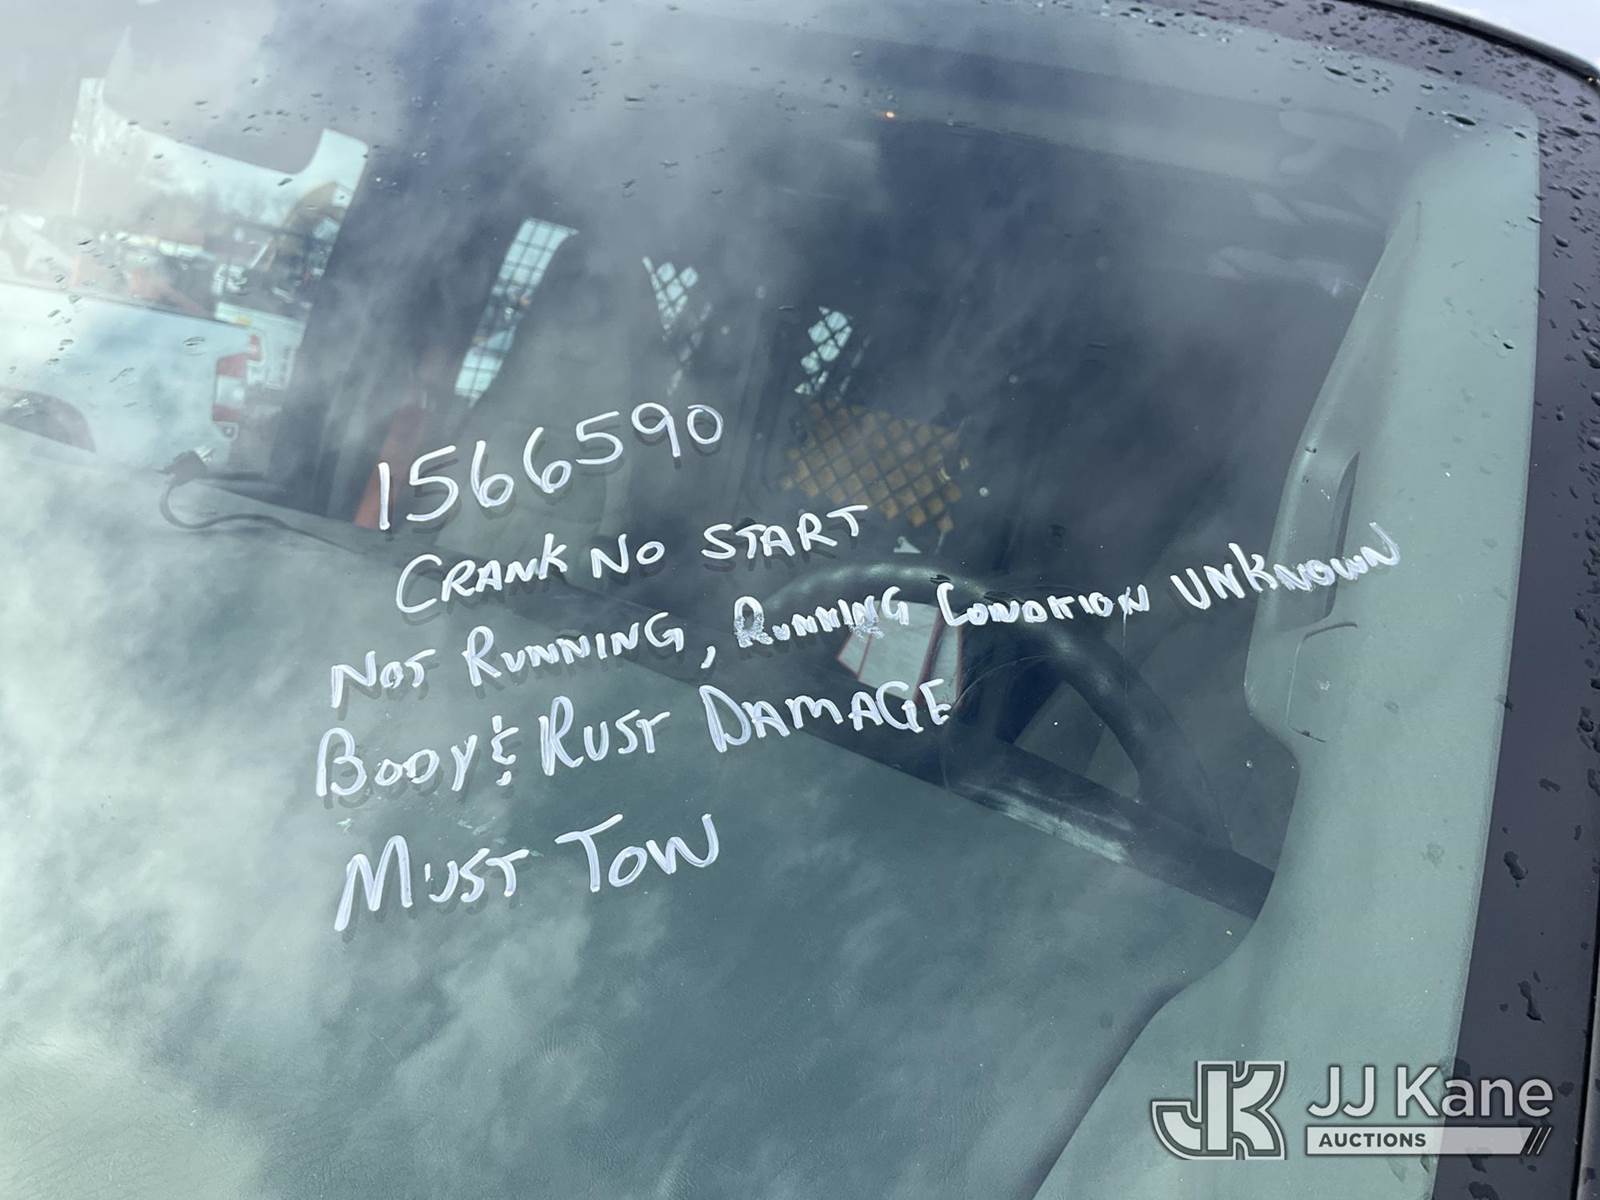 1566590
CRANK NO START
NOT RUNNING, RUNNING CONDITION UNKNOWN
BODY & RUST DAMAGE
MUST TOW
JK JJ Kane
AUCTIONS